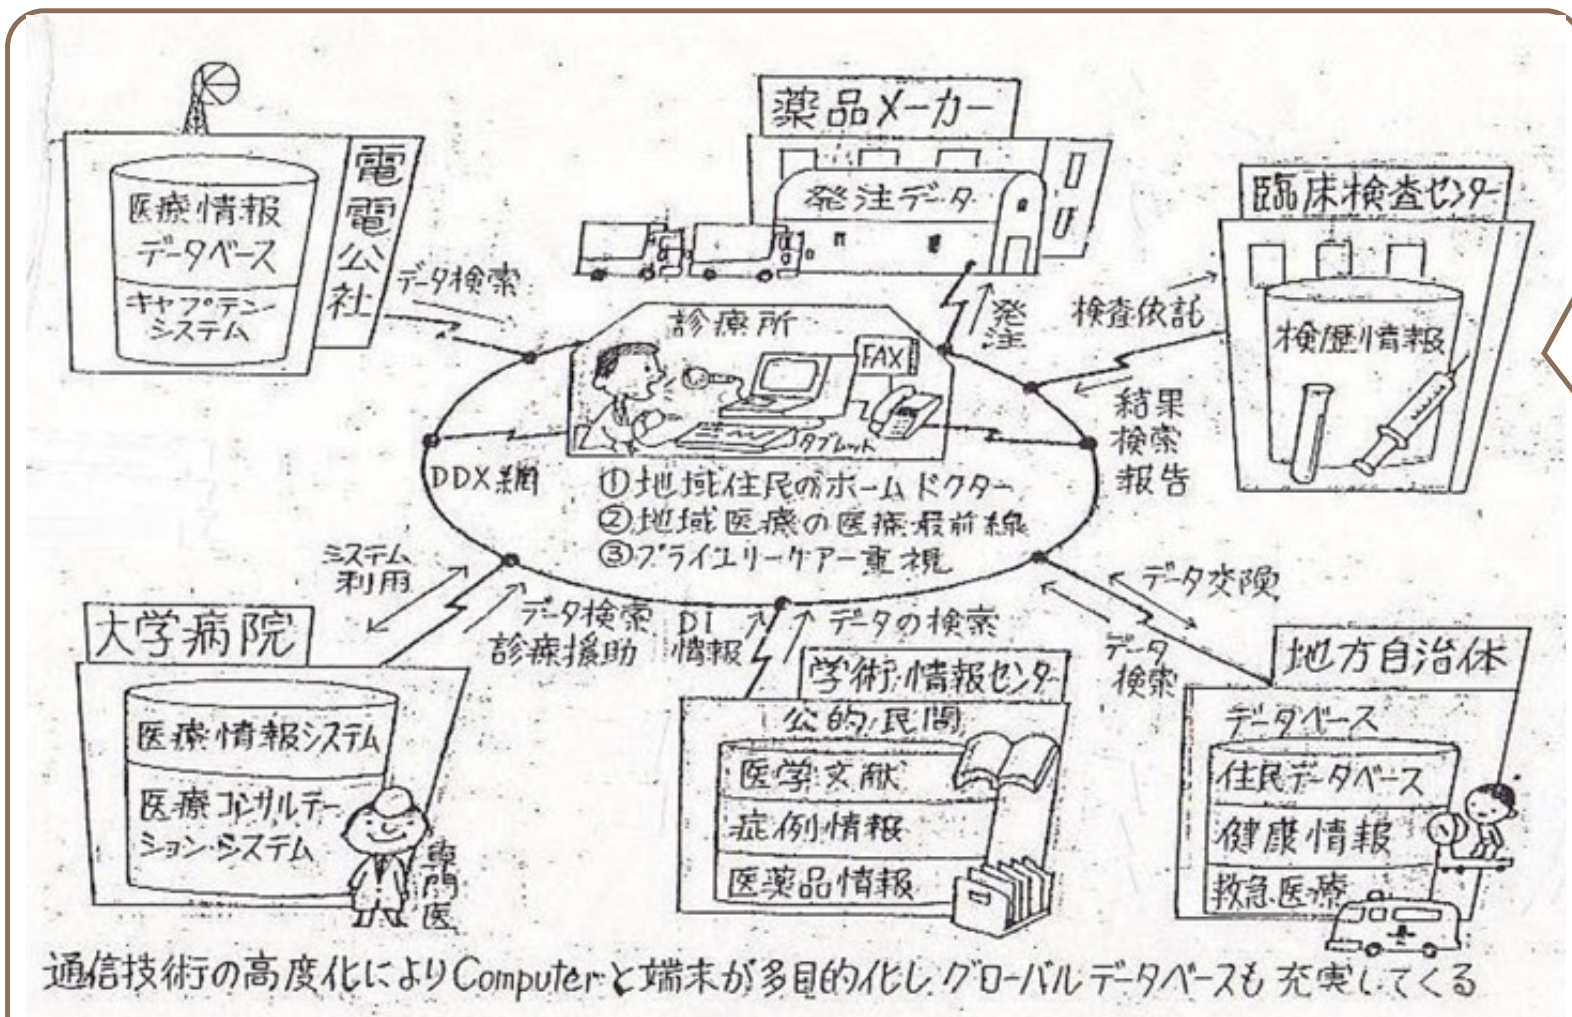 電電公社
医療情報
データベース
キャプテン
システム
データ検索
薬品メーカー
発注データ
発注
臨床検査センター
検歴情報
検査依託
結果
検索
報告
診療所
FAX
タブレット
DDX網
①地域住民のホームドクター
②地域医療の医療最前線
③プライエリーケアー重視
システム
利用
データ検索
診療援助
大学病院
医療情報システム
医療コンサルテー
ション・システム
専門医
DI
情報
データの検索
学術情報センター
公的/民間
医学文献
症例情報
医薬品情報
データ交険
データ
検索
地方自治体
データベース
住民データベース
健康情報
救急医療
通信技術の高度化によりComputerと端末が多目的化し.グローバルデータベースも充実してくる